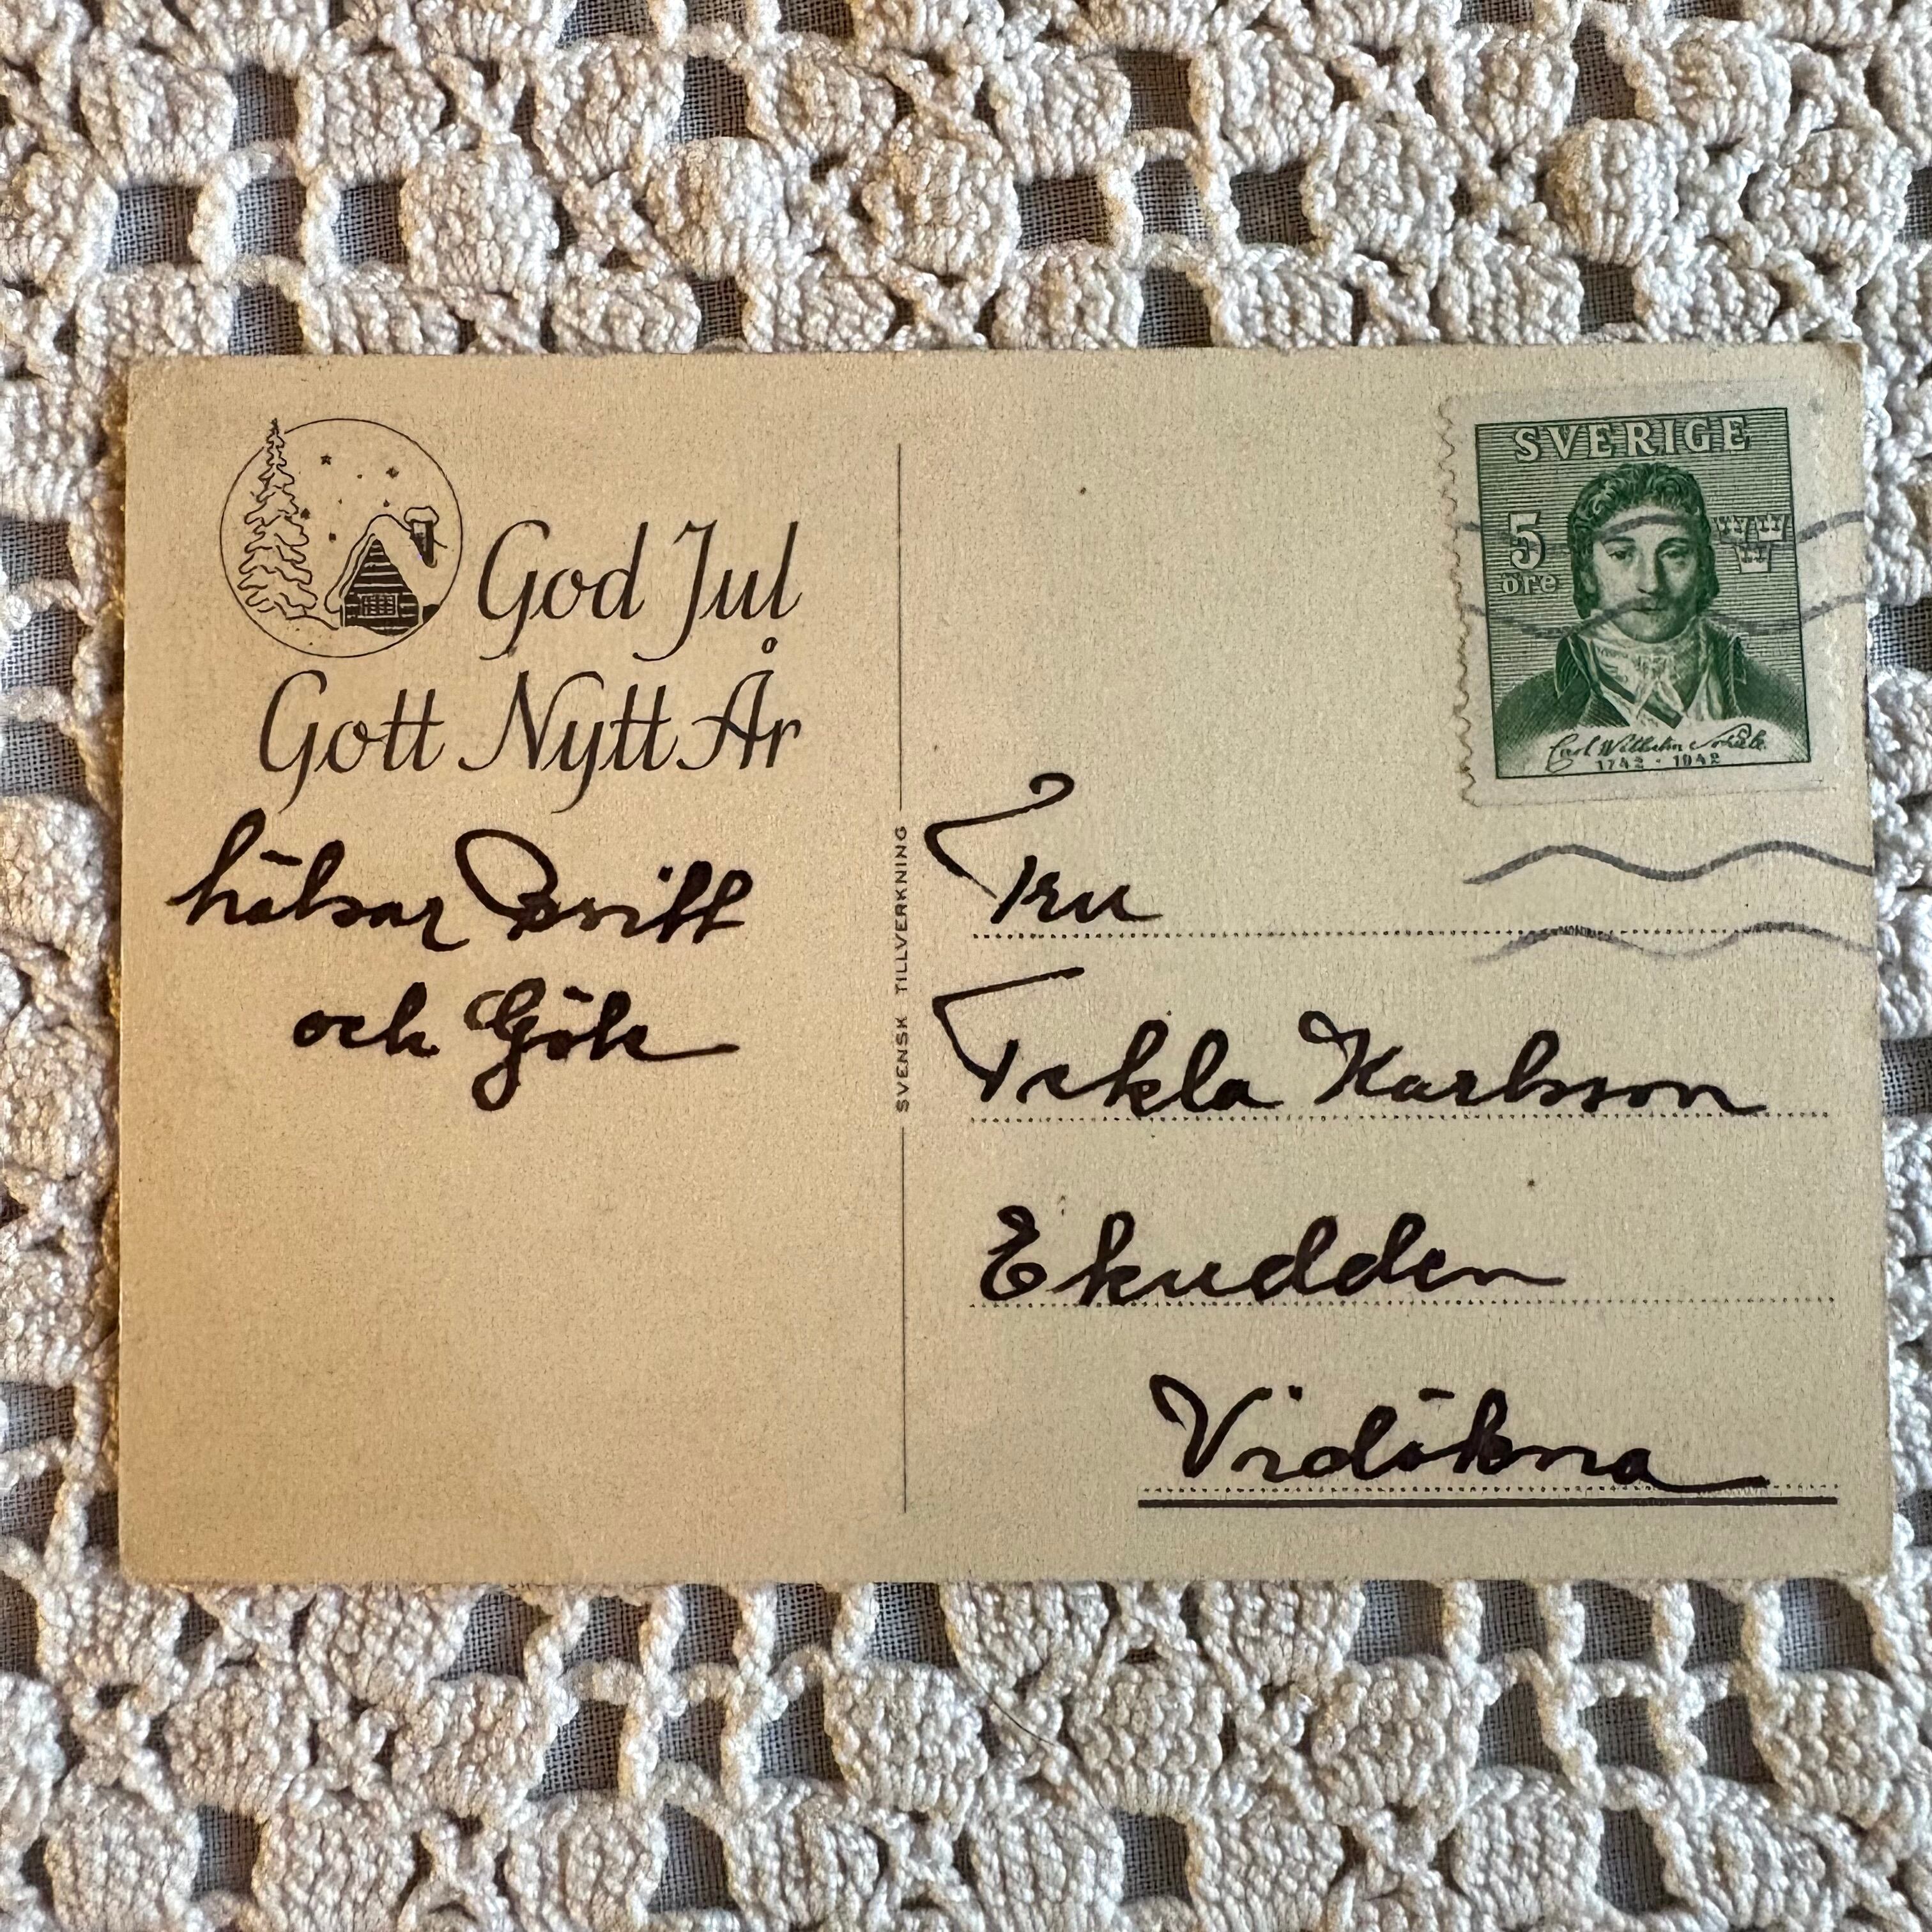 God Jul
Gott Nytt År
hälsar Britt
och Gök
SVENSK TILLVERKNING
SVERIGE
5
öre
Carl Wilhelm Scheele
1742 · 1942
Fru
Tekla Karlsson
Ekudden
Vidökna